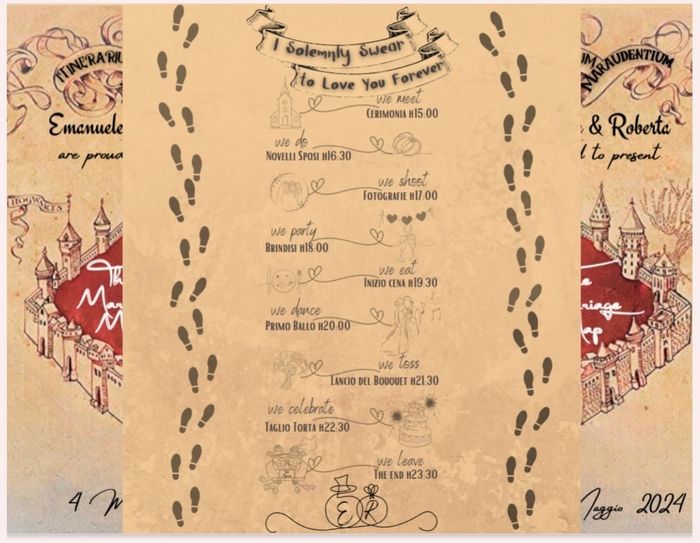 ITINERARIU
UM MARAUDENTIUM
Emanuele
& Roberta
are proud
d to present
HOGWARTS
Th
Mar
M
e
riage
ap
4 M
Maggio 2024
I Solemnly Swear
to Love You Forever
we meet
Cerimonia h15:00
we do
Novelli Sposi h16:30
we shoot
Fotografie h17:00
we party
Brindisi h18:00
we eat
Inizio cena h19:30
we dance
Primo Ballo h20:00
we toss
Lancio del Bouquet h21:30
we celebrate
Taglio Torta h22:30
we leave
The end h23:30
E R